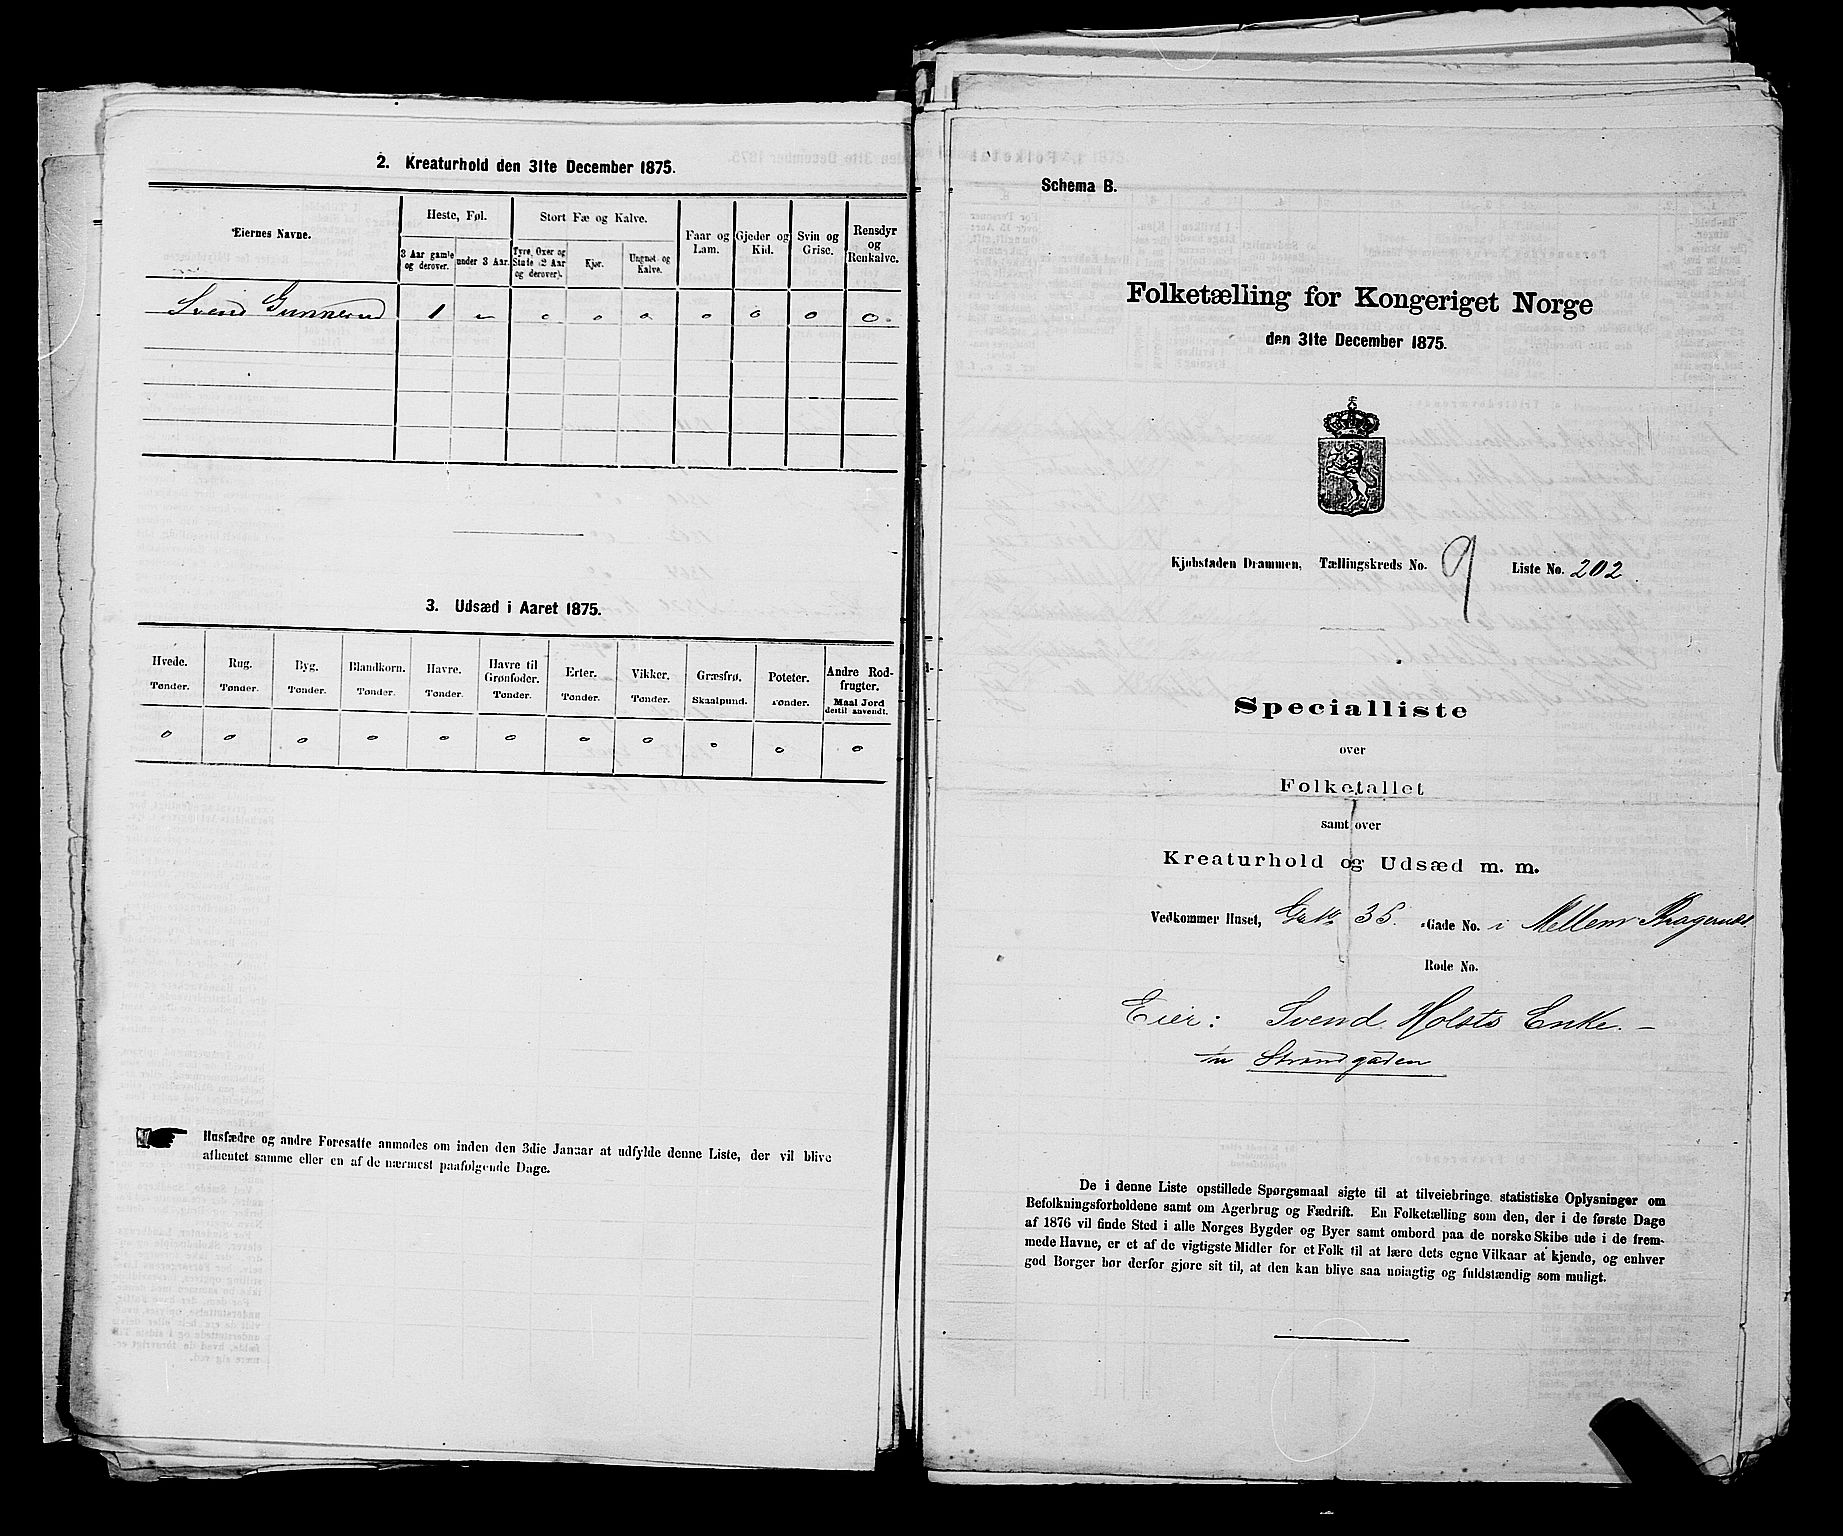 2. Kreaturhold den 31te December 1875.
Eiernes Navne.
Heste, Føl.
Stort Fæ og Kalve.
Faar og Lam.
Gjeder og Kid.
Svin og Grise.
Rensdyr og Renkalve.
3 Aar gamle og derover.
under 3 Aar.
Tyre, Oxer og Stude (2 Aar og derover).
Kjør.
Ungnøt og Kalve.
Svend Gunnerud 1 " 0 0 0 0 0 0 0
3. Udsæd i Aaret 1875.
Hvede. Rug. Byg. Blandkorn. Havre. Havre til Grønfoder. Erter. Vikker. Græsfrø. Poteter. Andre Rodfrugter.
Tønder. Tønder. Tønder. Tønder. Tønder. Tønder. Tønder. Tønder. Skaalpund. Tønder. Maal Jord dertil anvendt.
0 0 0 0 0 0 0 0 0 0 0
Husfædre og andre Foresatte anmodes om inden den 3die Januar at udfylde denne Liste, der vil blive
afhentet samme eller en af de nærmest paafølgende Dage.
Schema B.
Folketælling for Kongeriget Norge
den 31te December 1875.
Kjøbstaden Drammen, Tællingskreds No. 9 Liste No. 202
Specialliste
over
Folketallet
samt over
Kreaturhold og Udsæd m. m.
Vedkommer Huset, G. No 35. Gade No. i Mellem Bragernæs.
Rode No.
Eier: Svend Holsts Enke. —
Strandgaden
De i denne Liste opstillede Spørgsmaal sigte til at tilveiebringe statistiske Oplysninger om
Befolkningsforholdene samt om Agerbrug og Fædrift. En Folketælling som den, der i de første Dage
af 1876 vil finde Sted i alle Norges Bygder og Byer samt ombord paa de norske Skibe ude i de frem-
mede Havne, er et af de vigtigste Midler for et Folk til at lære dets egne Vilkaar at kjende, og enhver
god Borger bør derfor gjøre sit til, at den kan blive saa nøiagtig og fuldstændig som muligt.